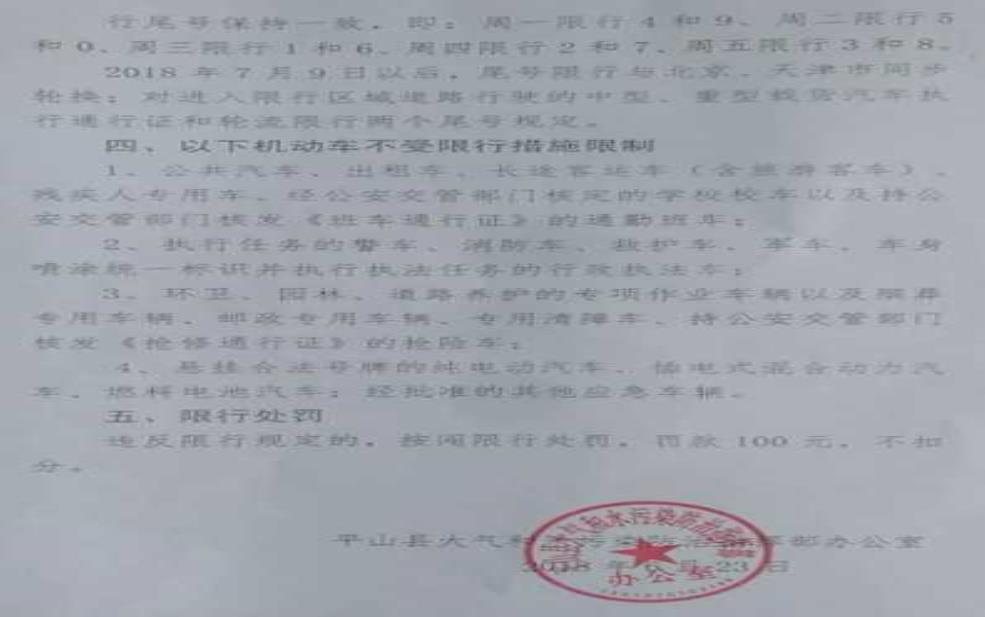 行尾号保持一致。即：周一限行 4 和 9、周二限行 5
和 0、周三限行 1 和 6、周四限行 2 和 7、周五限行 3 和 8。
2018 年 7 月 9 日以后，尾号限行与北京、天津市同步
轮换；对进入限行区域道路行驶的中型、重型载货汽车执
行通行证和轮流限行两个尾号规定。
四、以下机动车不受限行措施限制
1、公共汽车、出租车、长途客运车（含旅游客车）、
残疾人专用车、经公安交管部门核定的学校校车以及持公
安交管部门核发《班车通行证》的通勤班车；
2、执行任务的警车、消防车、救护车、军车、车身
喷涂统一标识并执行执法任务的行政执法车；
3、环卫、园林、道路养护的专项作业车辆以及殡葬
专用车辆、邮政专用车辆、专用清障车、持公安交管部门
核发《抢修通行证》的抢险车；
4、悬挂合法号牌的纯电动汽车、插电式混合动力汽
车、燃料电池汽车；经批准的其他应急车辆。
五、限行处罚
违反限行规定的，按闯限行处罚，罚款 100 元，不扣
分。
平山县大气和水污染防治指挥部办公室
2018 年 月 23 日
办公室